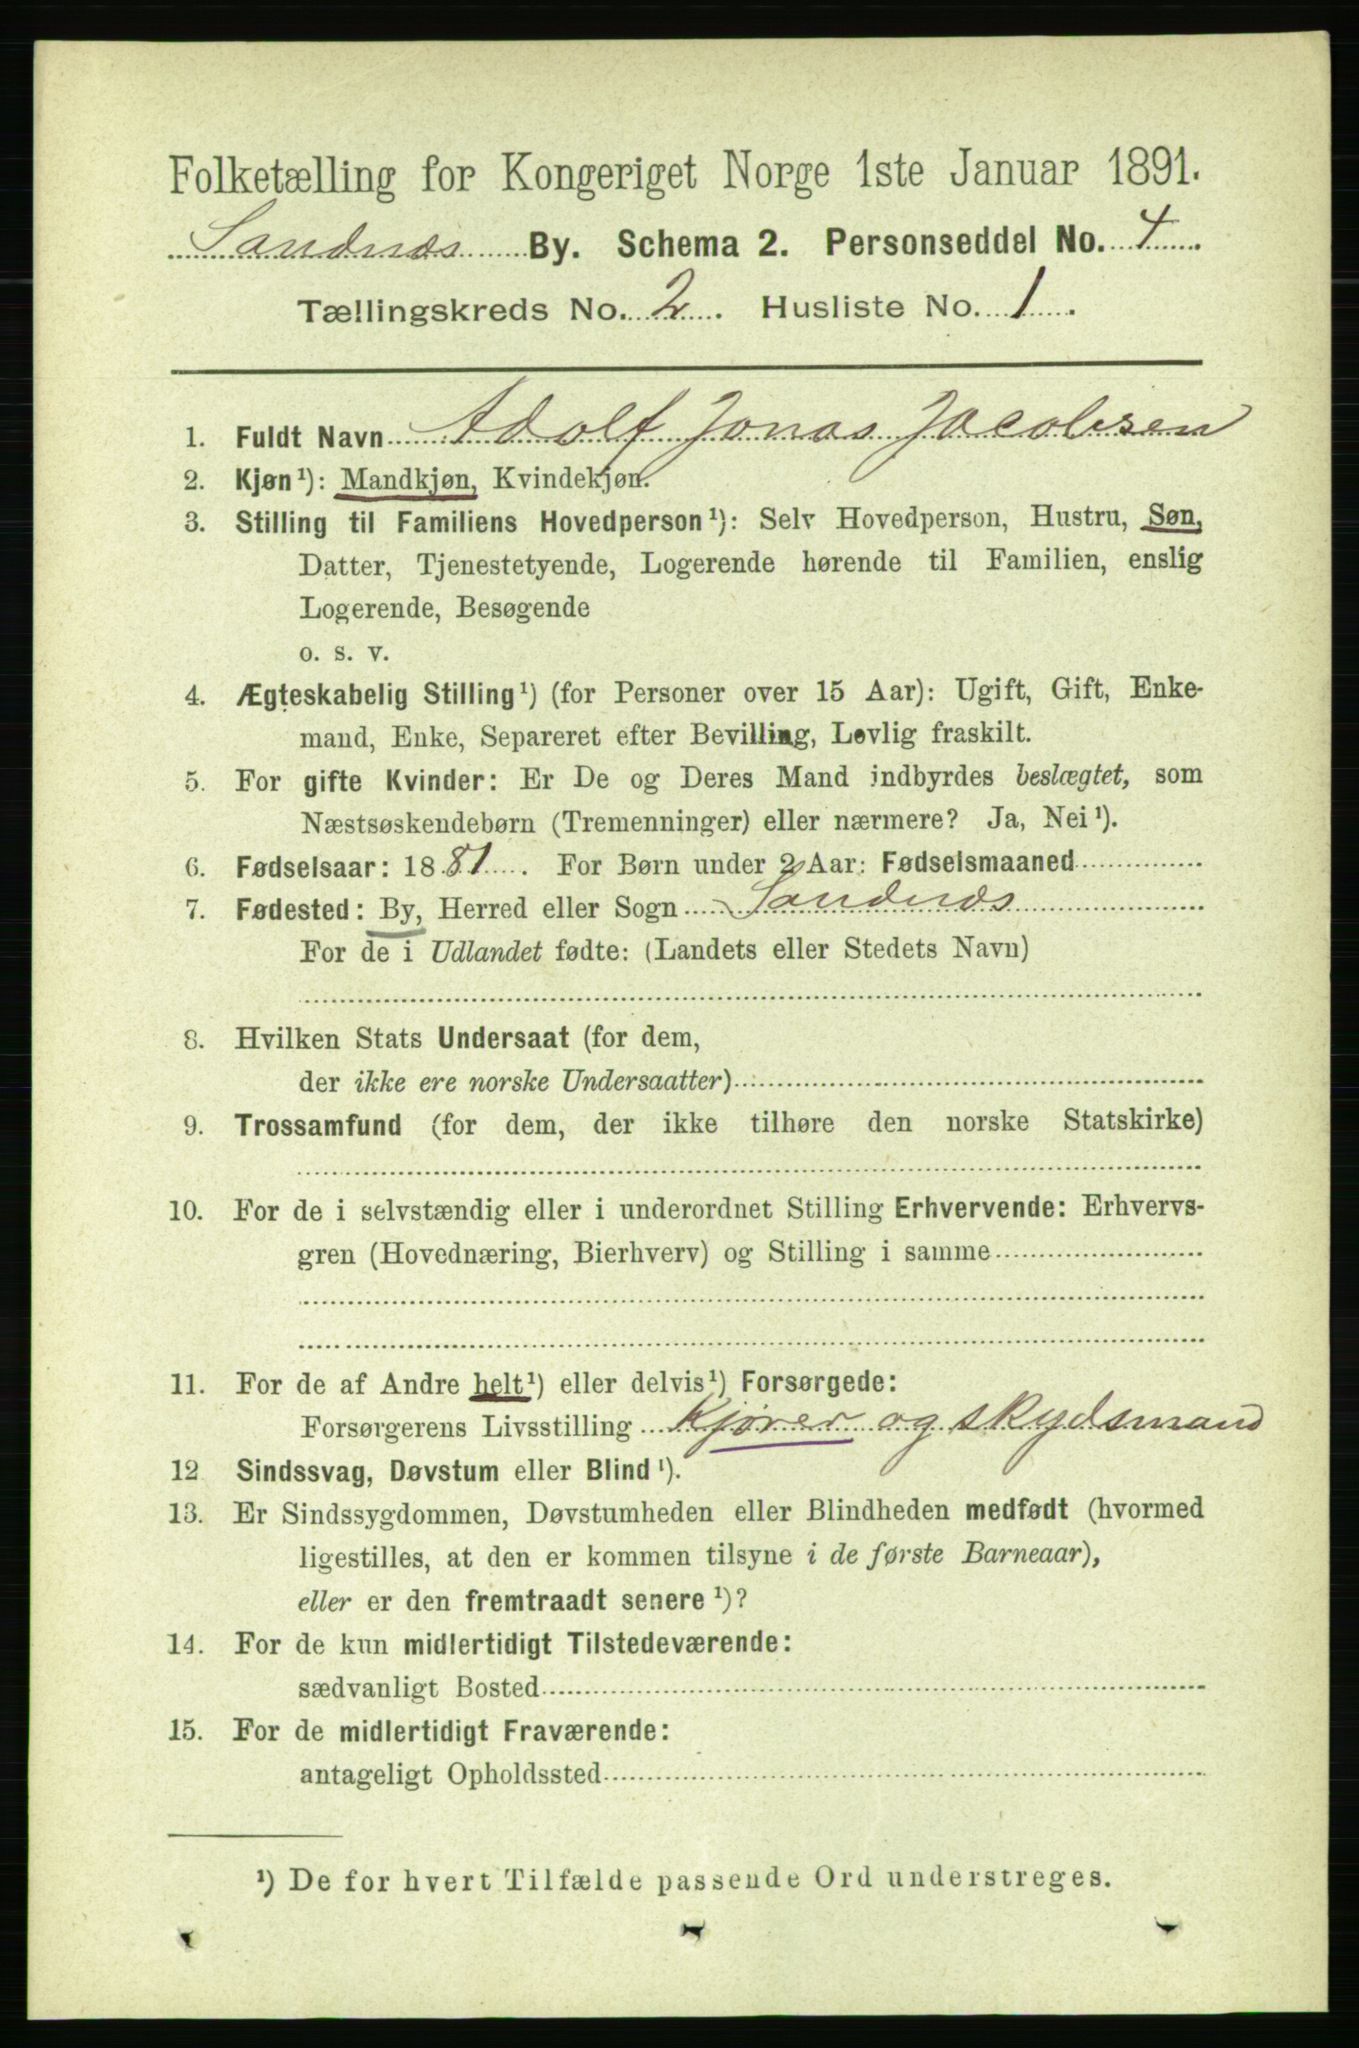 Folketælling for Kongeriget Norge 1ste Januar 1891.
Sandnæs By. Schema 2. Personseddel No. 4
Tællingskreds No. 2. Husliste No. 1.
1. Fuldt Navn Adolf Jonas Jacobsen
2. Kjøn¹): Mandkjøn, Kvindekjøn.
3. Stilling til Familiens Hovedperson¹): Selv Hovedperson, Hustru, Søn,
Datter, Tjenestetyende, Logerende hørende til Familien, enslig
Logerende, Besøgende
o. s. v.
4. Ægteskabelig Stilling¹) (for Personer over 15 Aar): Ugift, Gift, Enke-
mand, Enke, Separeret efter Bevilling, Lovlig fraskilt.
5. For gifte Kvinder: Er De og Deres Mand indbyrdes beslægtet, som
Næstsøskendebørn (Tremenninger) eller nærmere? Ja, Nei¹).
6. Fødselsaar: 1881. For Børn under 2 Aar: Fødselsmaaned
7. Fødested: By, Herred eller Sogn Sandnæs
For de i Udlandet fødte: (Landets eller Stedets Navn)
8. Hvilken Stats Undersaat (for dem,
der ikke ere norske Undersaatter)
9. Trossamfund (for dem, der ikke tilhøre den norske Statskirke)
10. For de i selvstændig eller i underordnet Stilling Erhvervende: Erhvervs-
gren (Hovednæring, Bierhverv) og Stilling i samme
11. For de af Andre helt¹) eller delvis¹) Forsørgede:
Forsørgerens Livsstilling Kjører og skydsmand
12 Sindssvag, Døvstum eller Blind¹).
13. Er Sindssygdommen, Døvstumheden eller Blindheden medfødt (hvormed
ligestilles, at den er kommen tilsyne i de første Barneaar),
eller er den fremtraadt senere¹)?
14. For de kun midlertidigt Tilstedeværende:
sædvanligt Bosted
15. For de midlertidigt Fraværende:
antageligt Opholdssted
¹) De for hvert Tilfælde passende Ord understreges.